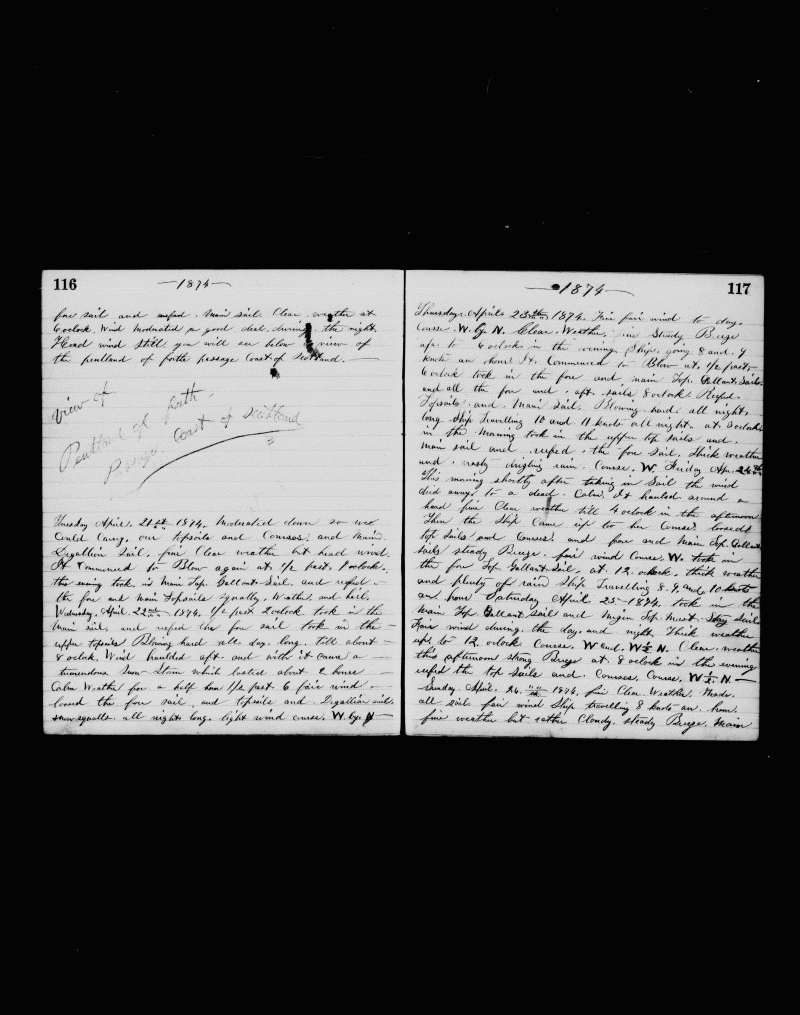 116
—1874—
fore sail and reefed. Main sail. Clear weather at
6 oclock. Wind Moderated a good deal. during the night.
Head wind still you will see below a view of
the pentland of forth passage Coast of Scotland. —
View of
Pentland of forth.
Passage. Coast of Scottland
Tuesday April. 21st 1874. Moderated down so we
Could Carry. our topsails and Courses. and Main.
sail. fine Clear weather but head wind.
It Commenced to Blow again at 1/2 past. 7 oclock.
this evening took. in Main Top. Gallant. Sail. and reefed —
the fore and Main Topsails Squally. Weather. and hail.
Wednesday. April. 22nd 1874. 1/2 past 2 oclock took in the
Main sail. and reefed the fore sail took in the —
upper topsails Blowing hard all day. long. till about —
8 oclock. Wind haulded aft and with it came a —
tremendous Snow Storm which lasted about 2 hours —
Calm Weather for a half hour 1/2 past 6 fair wind —
loosed the fore sail. and topsails and sail.
snow squalls all night long. light wind course. W. by. N
117
—1874—
Thursday. Aprile 23th 1874. Fine fair wind to day.
Course. W. by N. Clear. Weather. fine Steady Breeze
up. to 4 oclock in the evening Ship. going 8 and. 9
knots an hour It. Commenced to Blow at. 1/2 past.
6 oclock took in the fore and main Top. Gallant. Sails.
and all the fore and. aft. sails 8 oclock Reefed.
Topsails. and. Main Sail. Blowing hard. all night.
long Ship Travelling 10 and 11 knots all night. at 3 oclock
in the Morning took in the upper top sails and.
Main sail and reefed. the fore sail. Thick weather
and. nasty drizling rain. Course. W. Friday Apr. 24th
This morning shortly after taking in Sail the wind
died away. to a dead Calm. It hauled around a
head fine Clear weather till 4 oclock in the afternoon
Then the Ship Came up to her Course. loosed
top sails and Courses. and fore and Main Top. Gallant
sails steady Breeze. fair wind Course. W. took in
the fore Top. Gallant. Sail. at. 12. oclock. thick weather
and plenty of rain Ship Travelling 8. 9. and 10 knots
an hour Saturday April. 25 — 1874. took in the
Main Top Gallant Sail and Mizen Top. Mast. Stay Sail
Fair wind during. the day. and night. Thick weather
up. to 12 oclock Course. W and. W 1/2 N. Clear. weather
this afternoon strong Breeze at 8 oclock in the evening
reefed the top sails and. Courses. Course. W 1/2. N —
Sunday. April. 26. 1874. fine Clear. Weather. Made.
all sail. fair wind Ship travelling 8 knots an. hour.
fine weather but rather Cloudy. steady Breeze. Main